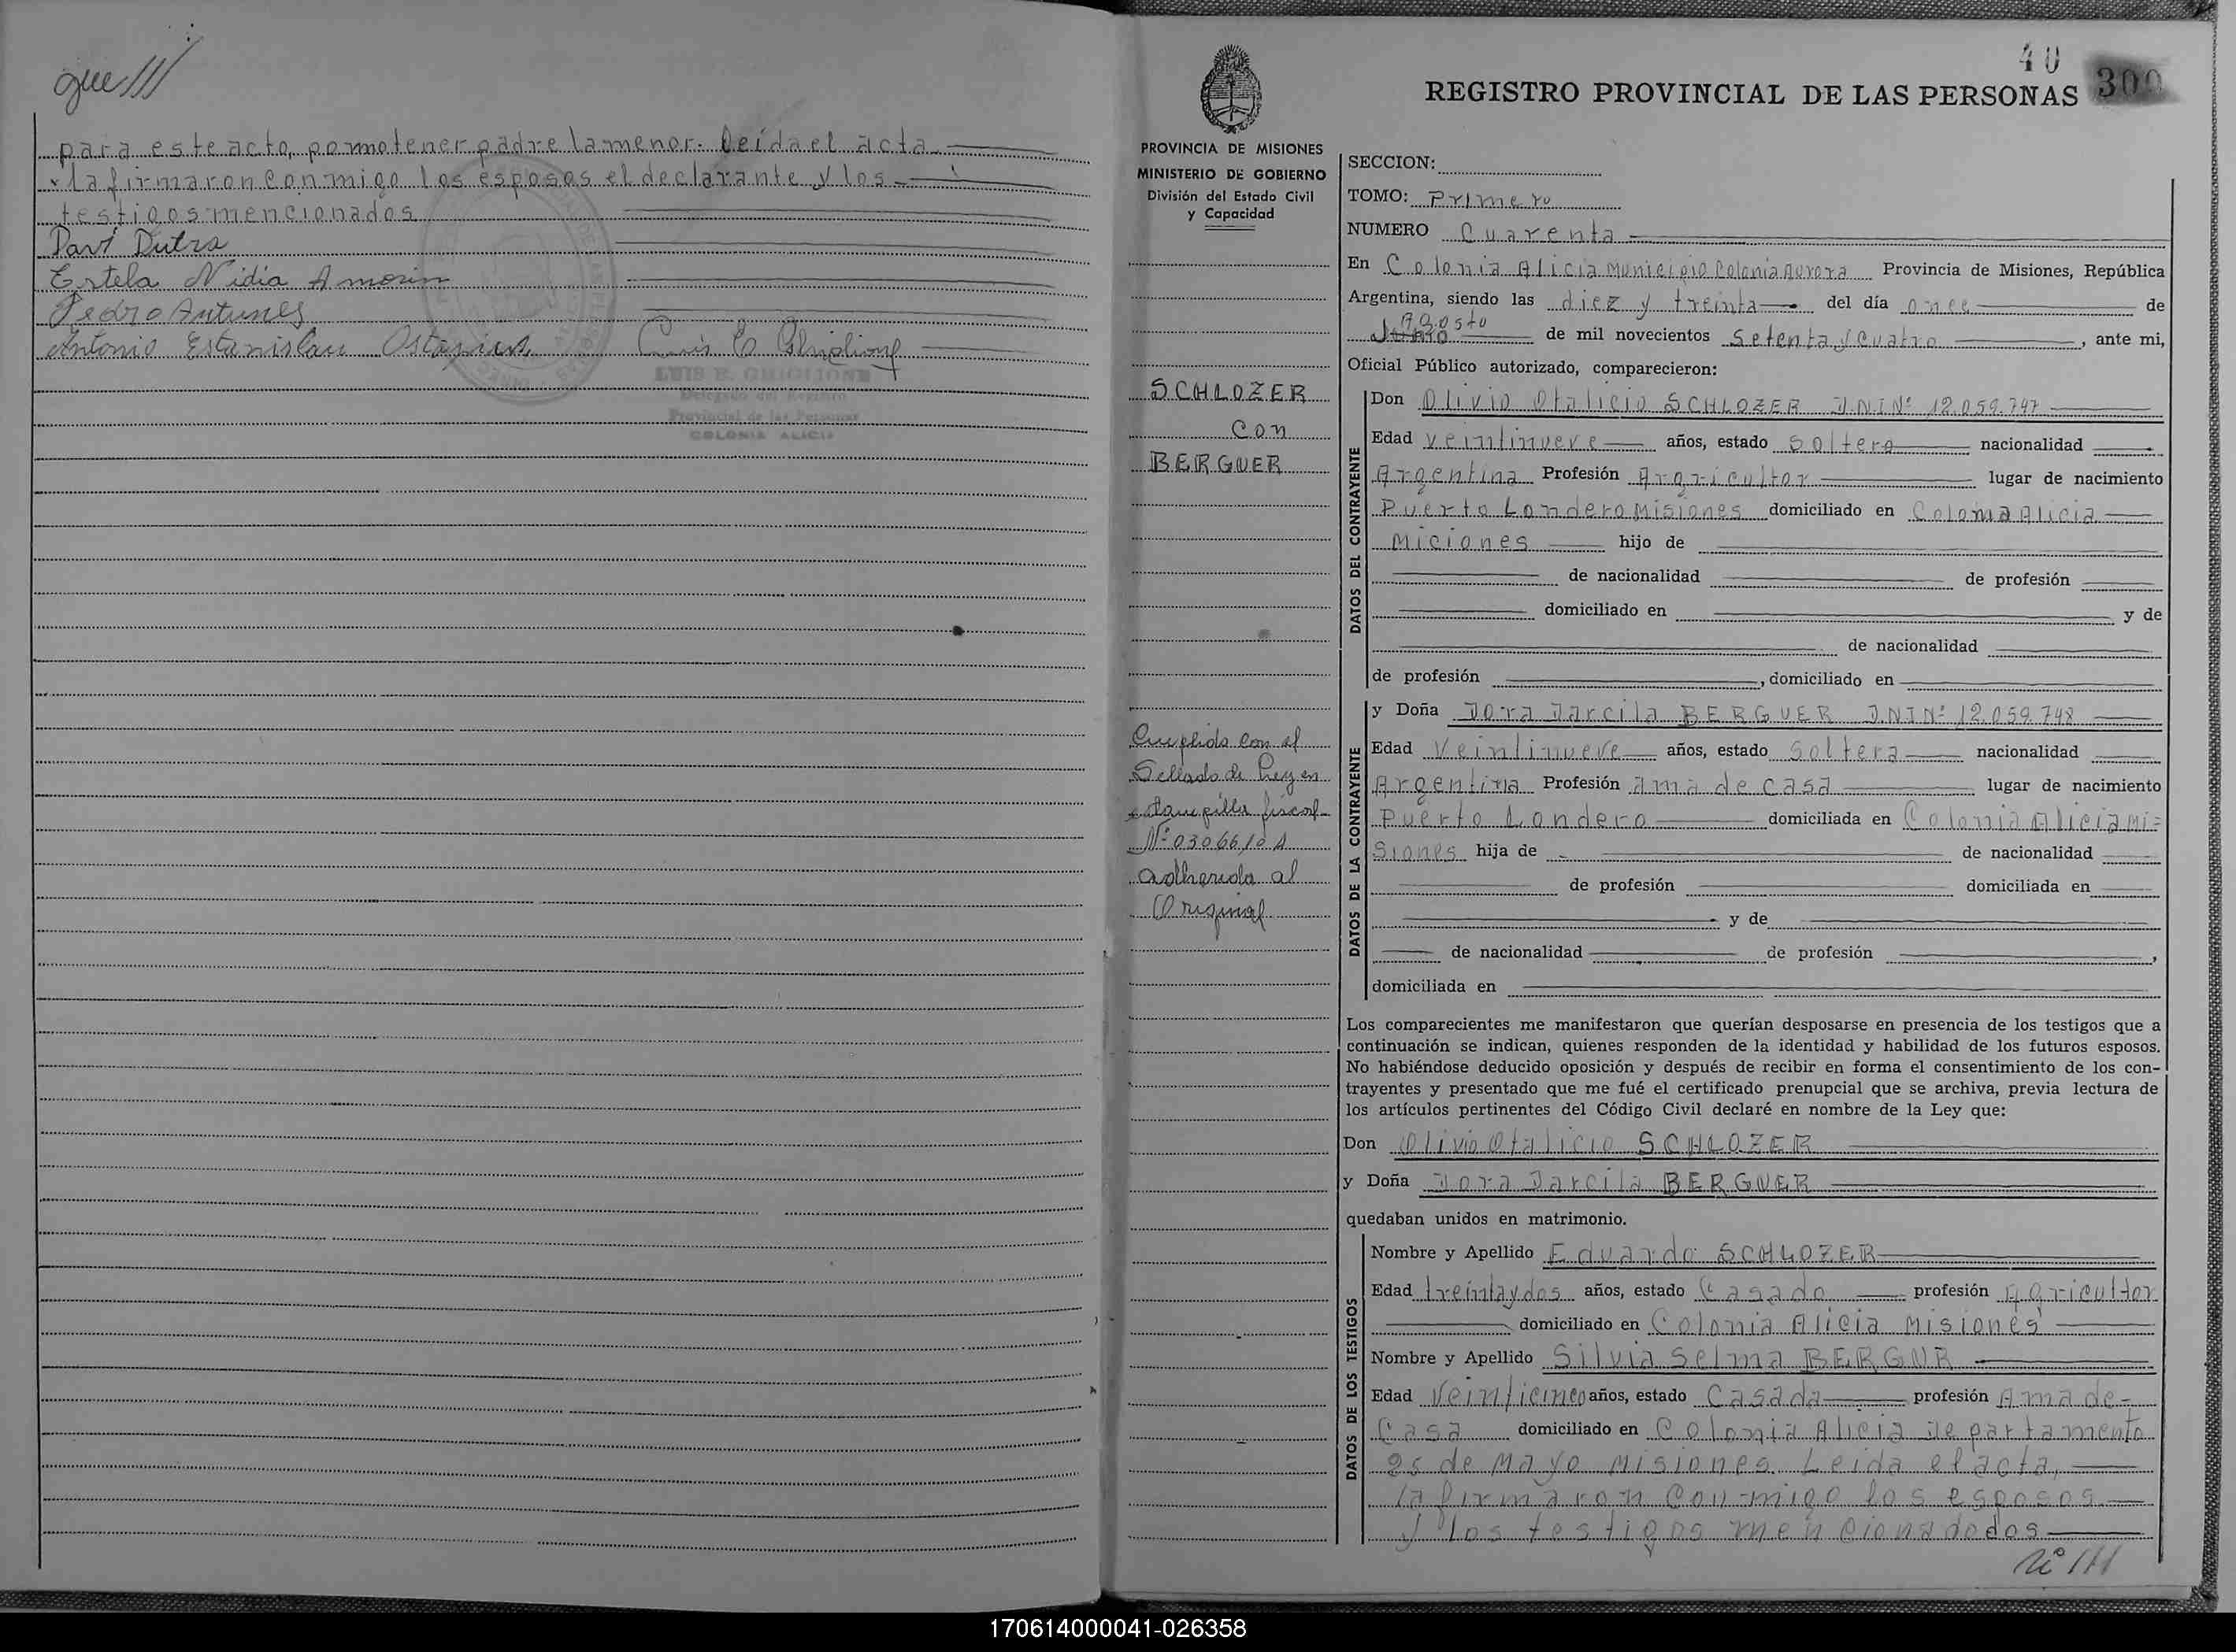 que///
para este acto, por no tener padre la menor. Leida el acta
la firmaron conmigo los esposos el declarante y los
testigos mencionados
Davi Dutra
Estela Nidia Amorin
Pedro Antunes
Antonio Estanislau
LUIS E. GHIGLIONE
Delegado del Registro
Provincial de las Personas
COLONIA ALICIA
40
300
REGISTRO PROVINCIAL DE LAS PERSONAS
PROVINCIA DE MISIONES
MINISTERIO DE GOBIERNO
División del Estado Civil
y Capacidad
SCHLOZER
con
BERGUER
Cumplido con el
Sellado de Ley en
estampilla fiscal
Nº 0306610 A
adherida al
Original
SECCION:
TOMO: Primero
NUMERO Cuarenta
En Colonia Alicia Municipio Colonia Aurora Provincia de Misiones, República
Argentina, siendo las diez y treinta del día once de
Agosto
Junio de mil novecientos setenta y cuatro, ante mi,
Oficial Público autorizado, comparecieron:
DATOS DEL CONTRAYENTE
Don Olivio Otalicio SCHLOZER D.N.I Nº 12.059.747
Edad veintinueve años, estado soltero nacionalidad
Argentina Profesión Argricultor lugar de nacimiento
Puerto Londero Misiones domiciliado en Colonia Alicia
Miciones hijo de
de nacionalidad de profesión
domiciliado en y de
de nacionalidad
de profesión , domiciliado en
DATOS DE LA CONTRAYENTE
y Doña Dora Darcila BERGUER D.N.I Nº 12.059.748
Edad Veintinueve años, estado Soltera nacionalidad
Argentina Profesión ama de casa lugar de nacimiento
Puerto Londero domiciliada en Colonia Alicia Mi=
siones hija de de nacionalidad
de profesión domiciliada en
y de
de nacionalidad de profesión ,
domiciliada en
Los comparecientes me manifestaron que querían desposarse en presencia de los testigos que a
continuación se indican, quienes responden de la identidad y habilidad de los futuros esposos.
No habiéndose deducido oposición y después de recibir en forma el consentimiento de los con-
trayentes y presentado que me fué el certificado prenupcial que se archiva, previa lectura de
los artículos pertinentes del Código Civil declaré en nombre de la Ley que:
Don Olivio Otalicio SCHLOZER
y Doña Dora Darcila BERGUER
quedaban unidos en matrimonio.
DATOS DE LOS TESTIGOS
Nombre y Apellido Eduardo SCHLOZER
Edad treintaydos años, estado Casado profesión Agricultor
domiciliado en Colonia Alicia Misiones
Nombre y Apellido Silvia Selma BERGUR
Edad Veinticinco años, estado Casada profesión Ama de-
Casa domiciliado en Colonia Alicia Departamento
25 de Mayo Misiones. Leida el acta,
la firmaron conmigo los esposos
y los testigos mencionadodos
170614000041-026358